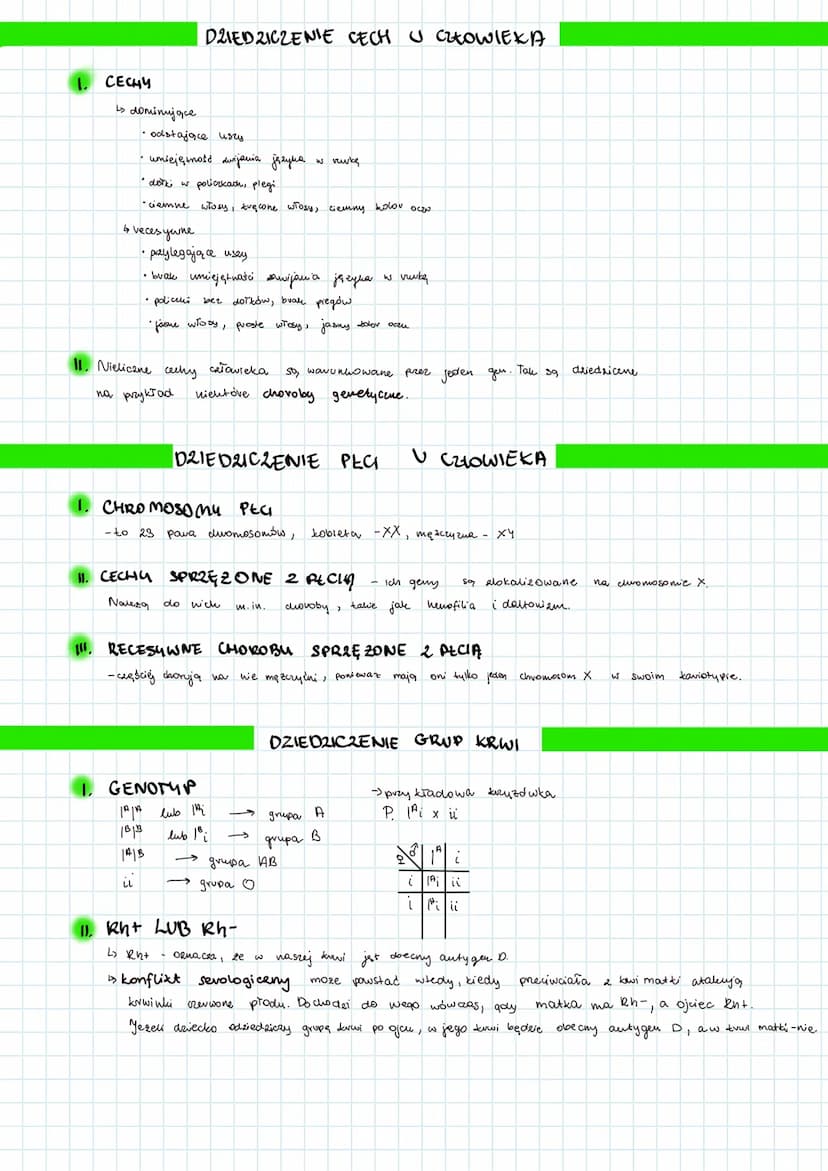 DZIEDZICZENIE CECH U CZŁOWIEKA
I. CECHY
↳ dominujące
• odstające uszy
• umiejętność zwijania języka w rurkę
• dołki w policzkach, piegi
• ciemne włosy, kręcone włosy, ciemny kolor oczu
↳ recesywne
• przylegające uszy
• brak umiejętności zawijania języka w rurkę
• policzki bez dołków, brak piegów
• jasne włosy, proste włosy, jasny kolor oczu
II. Nieliczne cechy człowieka są warunkowane przez jeden gen. Tak są dziedziczne
na przykład niektóre choroby genetyczne.
DZIEDZICZENIE PŁCI U CZŁOWIEKA
I. CHROMOSOMY PŁCI
- to 23 para chromosomów, kobieta - XX, mężczyzna - XY
II. CECHY SPRZĘŻONE Z PŁCIĄ - ich geny są zlokalizowane na chromosomie X.
Należą do nich m.in. choroby, takie jak hemofilia i daltonizm.
III. RECESYWNE CHOROBY SPRZĘŻONE Z PŁCIĄ
- częściej chorują na nie mężczyźni, ponieważ mają oni tylko jeden chromosom X w swoim kariotypie.
DZIEDZICZENIE GRUP KRWI
I. GENOTYP
IᴬIᴬ lub Iᴬi → grupa A
IᴮIᴮ lub Iᴮi → grupa B
IᴬIᴮ → grupa AB
ii → grupa O
→ przykładowa krzyżówka
P. Iᴬi x ii
♀ ♂ Iᴬ i
i Iᴬi ii
i Iᴬi ii
II. Rh+ LUB Rh-
↳ Rh+ - oznacza, że w naszej krwi jest obecny antygen D.
↳ konflikt serologiczny może powstać wtedy, kiedy przeciwciała z krwi matki atakują
krwinki czerwone płodu. Dochodzi do niego wówczas, gdy matka ma Rh-, a ojciec Rh+.
Jeżeli dziecko odziedziczy grupę krwi po ojcu, w jego krwi będzie obecny antygen D, a w krwi matki - nie